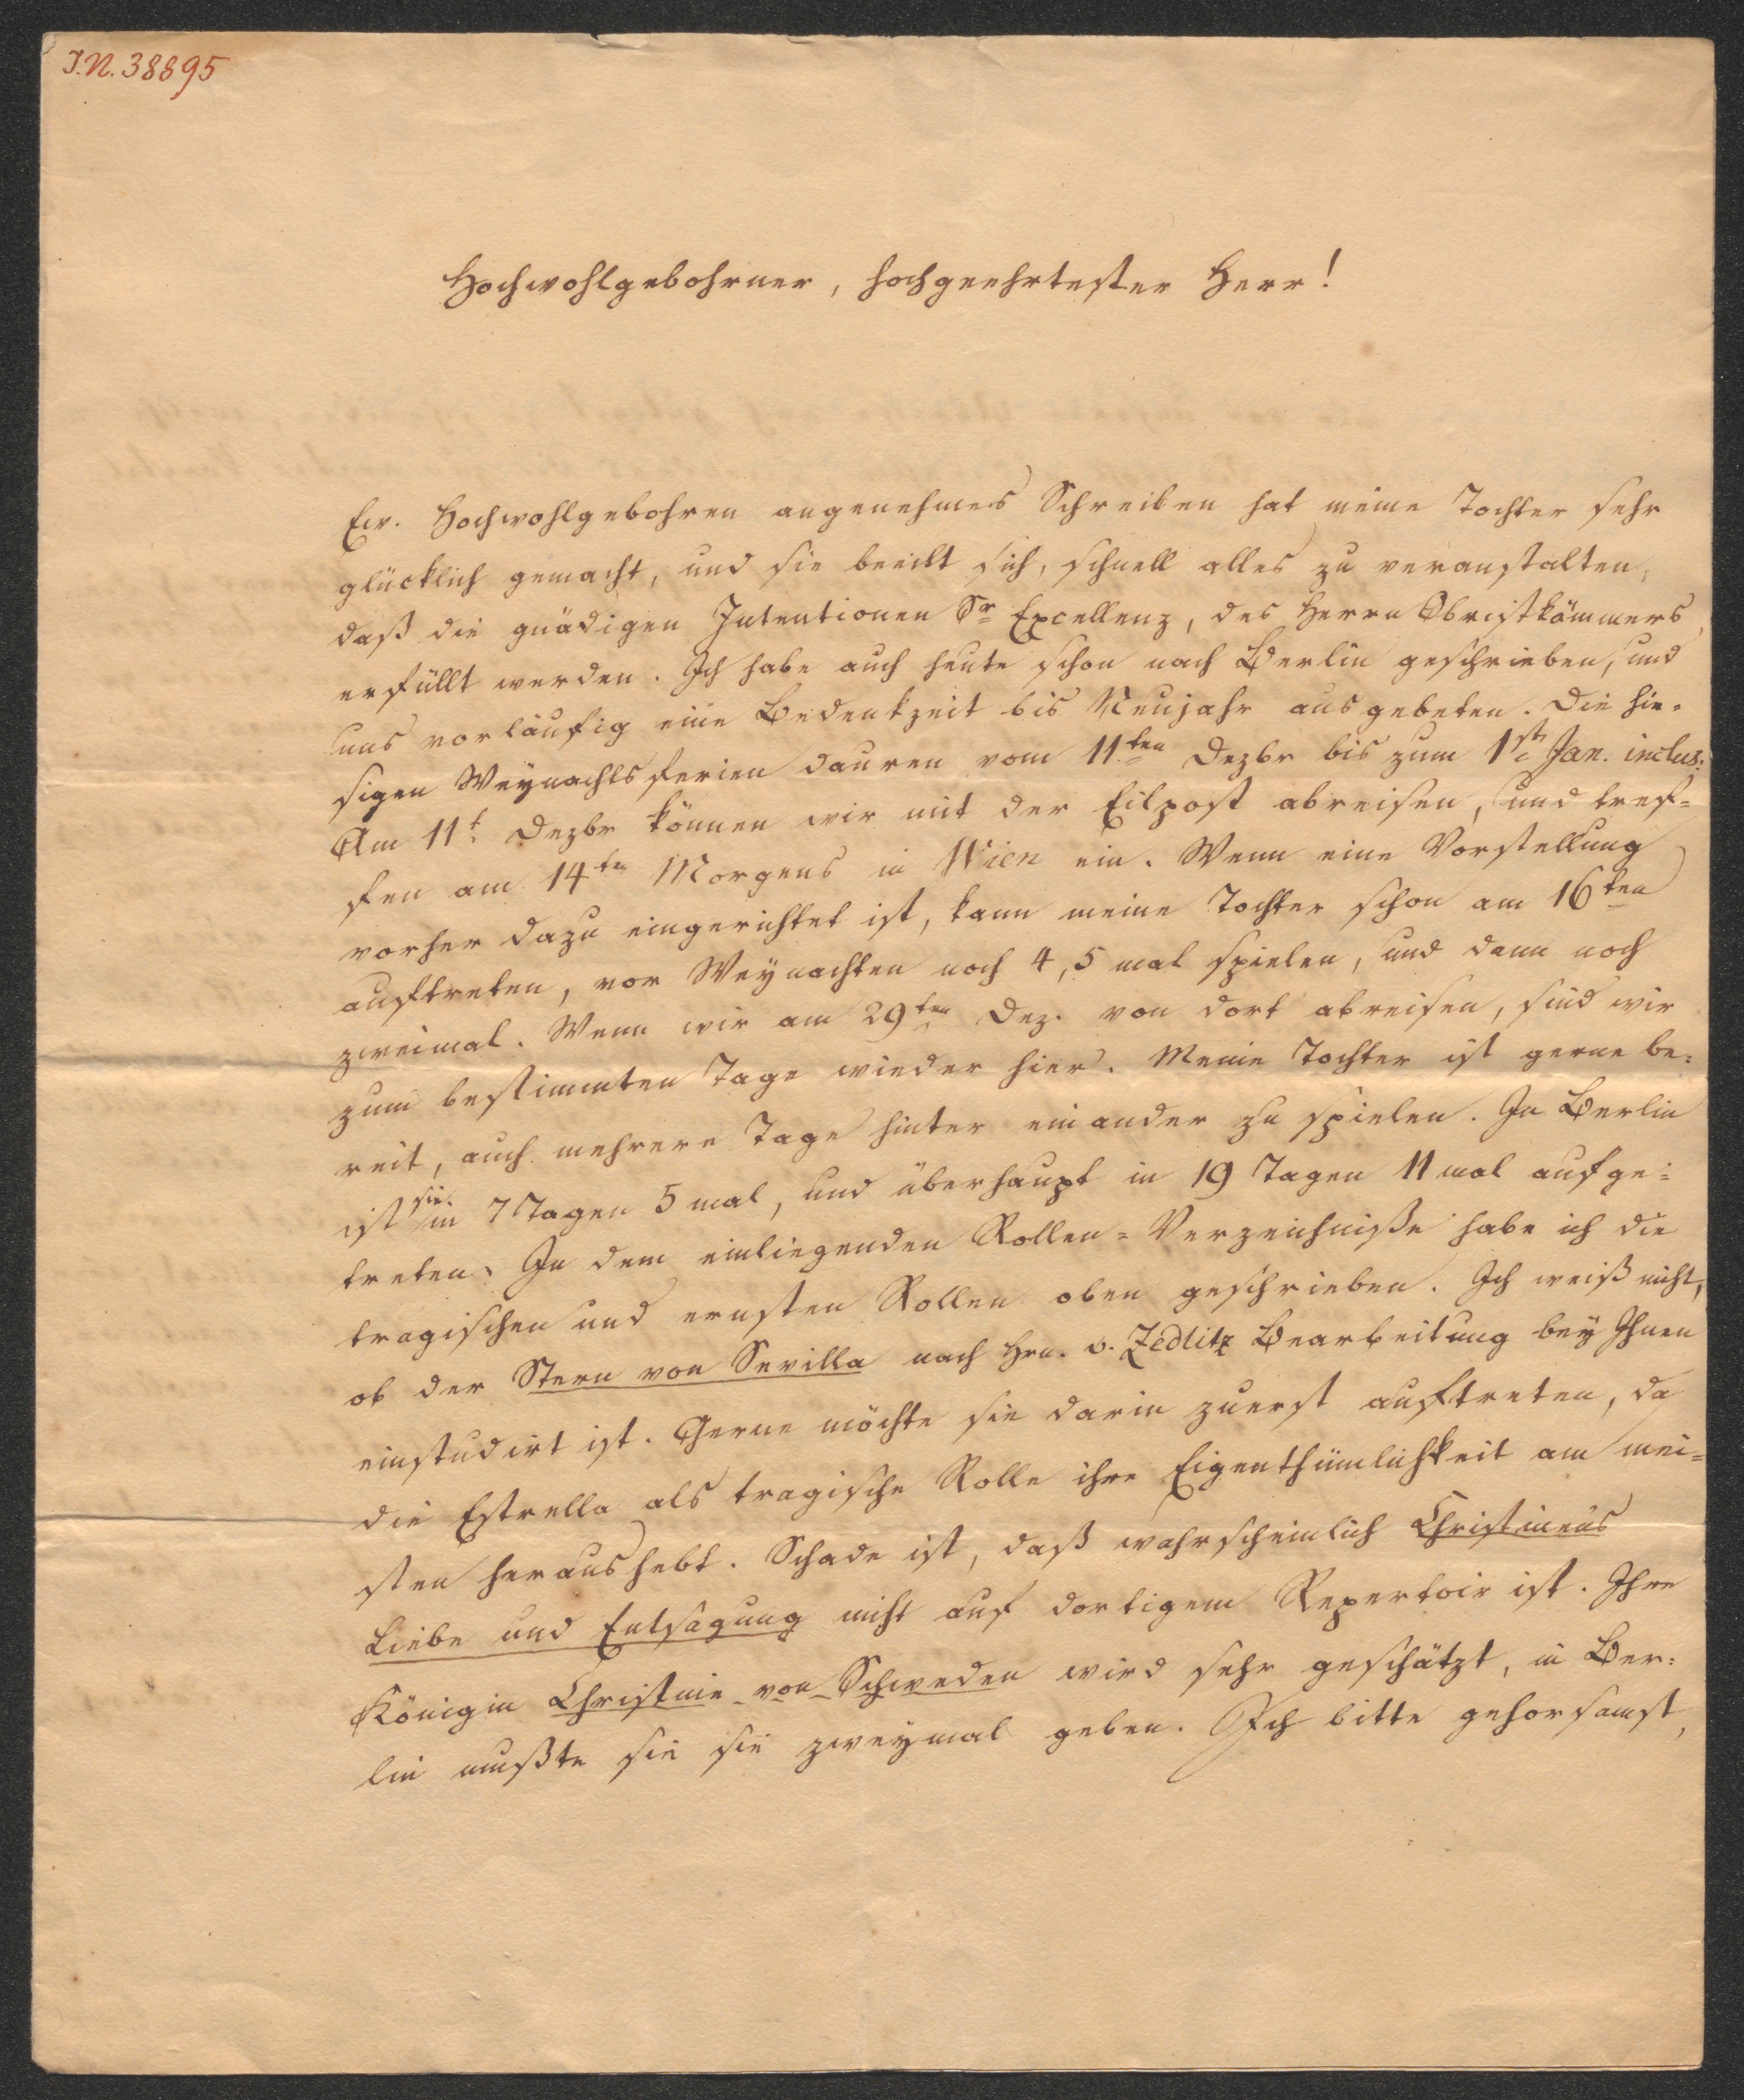 J.N. 38895
Hochwohlgebohrner, hochgeehrtester Herr!
Ew. Hochwohlgebohren angenehmes Schreiben hat meine Tochter sehr
glücklich gemacht, und sie beeilt sich, schnell alles zu veranstalten,
daß die gnädigen Intentionen Sr Excellenz, des Herrn Obristkämmers,
erfüllt werden. Ich habe auch heute schon nach Berlin geschrieben, und
uns vorläufig eine Bedenkzeit bis Neujahr ausgebeten. Die hie-
sigen Weynachtsferien dauren vom 11ten Dezbr bis zum 1st Jan. inclus:
Am 11t Dezbr können wir mit der Eilpost abreisen, und tref=
fen am 14ten Morgens in Wien ein. Wenn eine Vorstellung
vorher dazu eingerichtet ist, kann meine Tochter schon am 16ten
auftreten, vor Weynachten noch 4, 5 mal spielen, und dann noch
zweimal. Wenn wir am 29ten Dez. von dort abreisen, sind wir
zum bestimmten Tage wieder hier. Meine Tochter ist gerne be=
reit, auch mehrere Tage hinter einander zu spielen. In Berlin
ist sie in 7 Tagen 5 mal, und überhaupt in 19 Tagen 11 mal aufge=
treten. In dem einliegenden Rollen=Verzeichniße habe ich die
tragischen und ernsten Rollen oben geschrieben. Ich weiß nicht,
ob der Stern von Sevilla nach Hrn. v. Zedlitz Bearbeitung bey Ihnen
einstudirt ist. Gerne möchte sie darin zuerst auftreten, da
die Estrella als tragische Rolle ihre Eigenthümlichkeit am mei=
sten heraushebt. Schade ist, daß wahrscheinlich Christinens
Liebe und Entsagung nicht auf dortigem Repertoir ist. Ihre
Königin Christine von Schweden wird sehr geschätzt, in Ber=
lin mußte sie sie zweymal geben. Ich bitte gehorsamst,